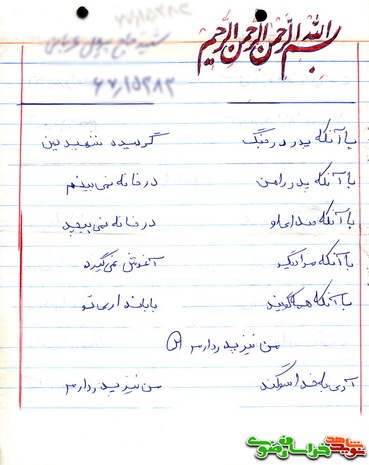 بسم الله الرحمن الرحیم
با آنکه پدر در جنگ گردیده شهید دین
با آنکه پدر را من در خانه نمی بینم
با آنکه صدای او در خانه نمی پیچد
با آنکه مرا دیگر آغوش نمی گیرد
با آنکه همه گویند بابا نداری تو
من نیز پدر دارم
آری به خدا سوگند من نیز پدر دارم
نوید شاهد
خراسان رضوی